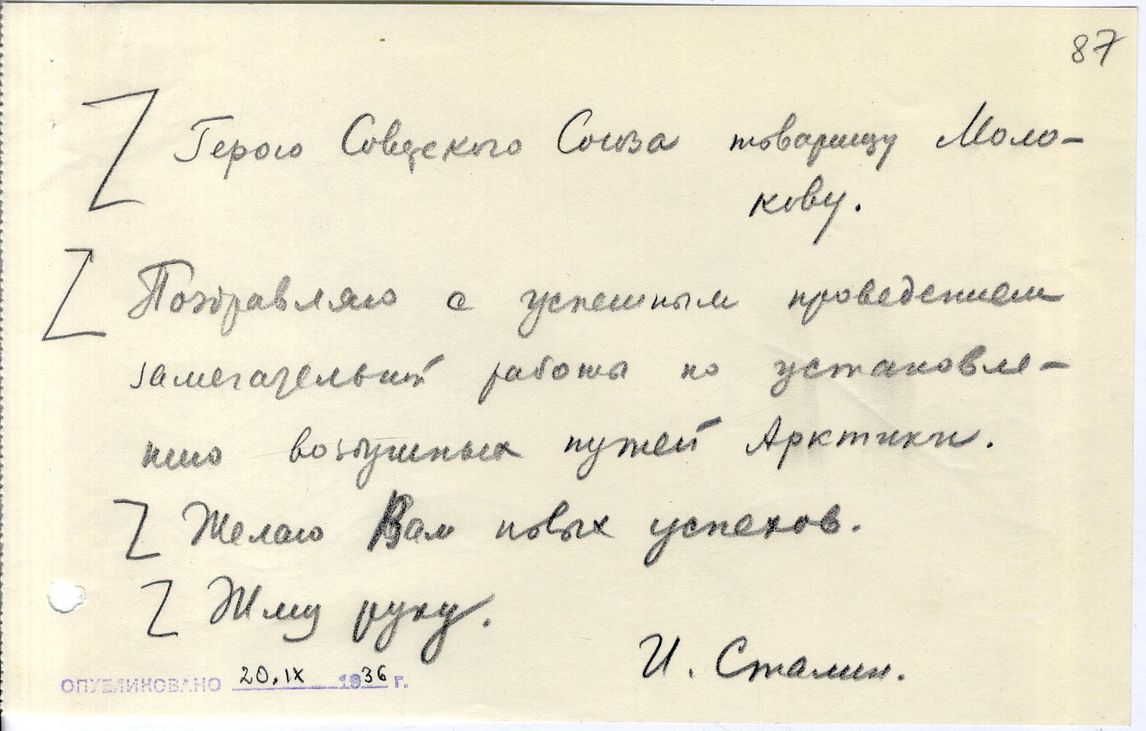 87
Герою Советского Союза товарищу Моло-
кову.
Поздравляю с успешным проведением
замечательной работы по установле-
нию воздушных путей Арктики.
Желаю Вам новых успехов.
Жму руку.
И. Сталин.
ОПУБЛИКОВАНО 20.IX 1936 г.